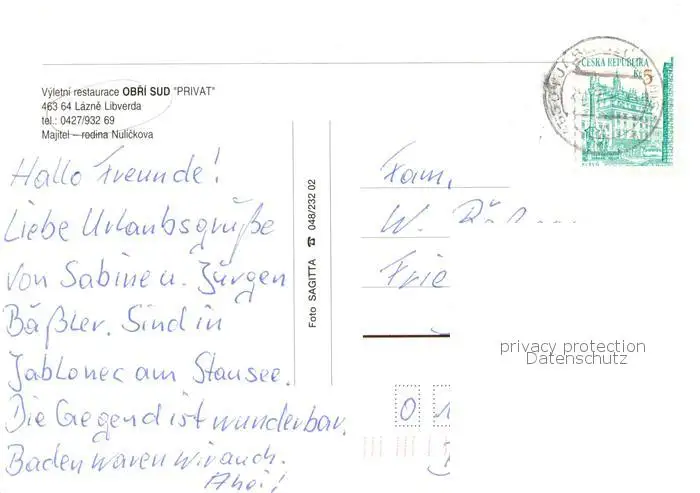 Výletní restaurace OBŘÍ SUD "PRIVAT"
463 64 Lázně Libverda
tel.: 0427/932 69
Majitel – rodina Nulíčkova
Hallo Freunde!
Liebe Urlaubsgrüße
von Sabine u. Jürgen
Bäßler. Sind in
Jablonec am Stausee.
Die Gegend ist wunderbar.
Baden waren wir auch.
Ahoi!
Foto SAGITTA ☎ 048/232 02
ČESKÁ REPUBLIKA
Kč 5
Fam.
W.
Frie
0 1
privacy protection
Datenschutz